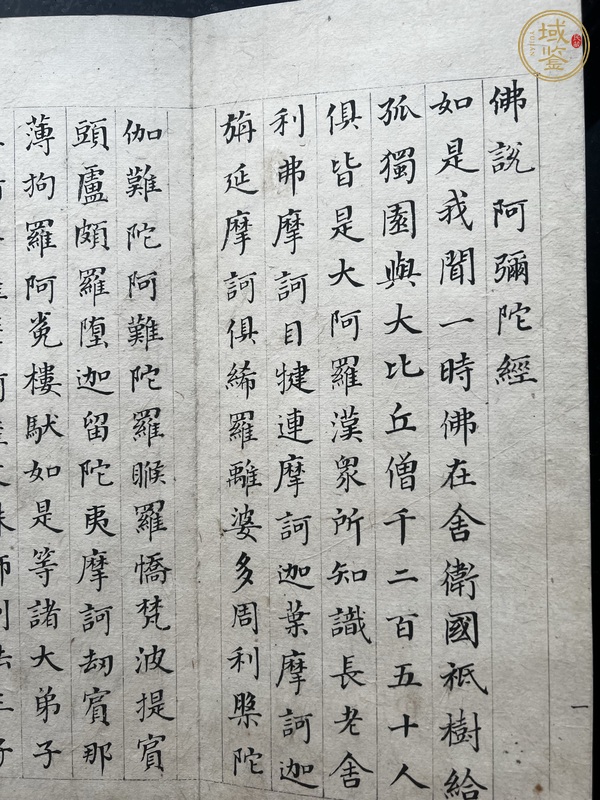 域鑒
佛說阿彌陀經
如是我聞一時佛在舍衛國祇樹給
孤獨園與大比丘僧千二百五十人
俱皆是大阿羅漢眾所知識長老舍
利弗摩訶目犍連摩訶迦葉摩訶迦
旃延摩訶俱絺羅離婆多周利槃陀
伽難陀阿難陀羅睺羅憍梵波提賓
頭盧頗羅墮迦留陀夷摩訶劫賓那
薄拘羅阿㝹樓馱如是等諸大弟子
師利法王子
一